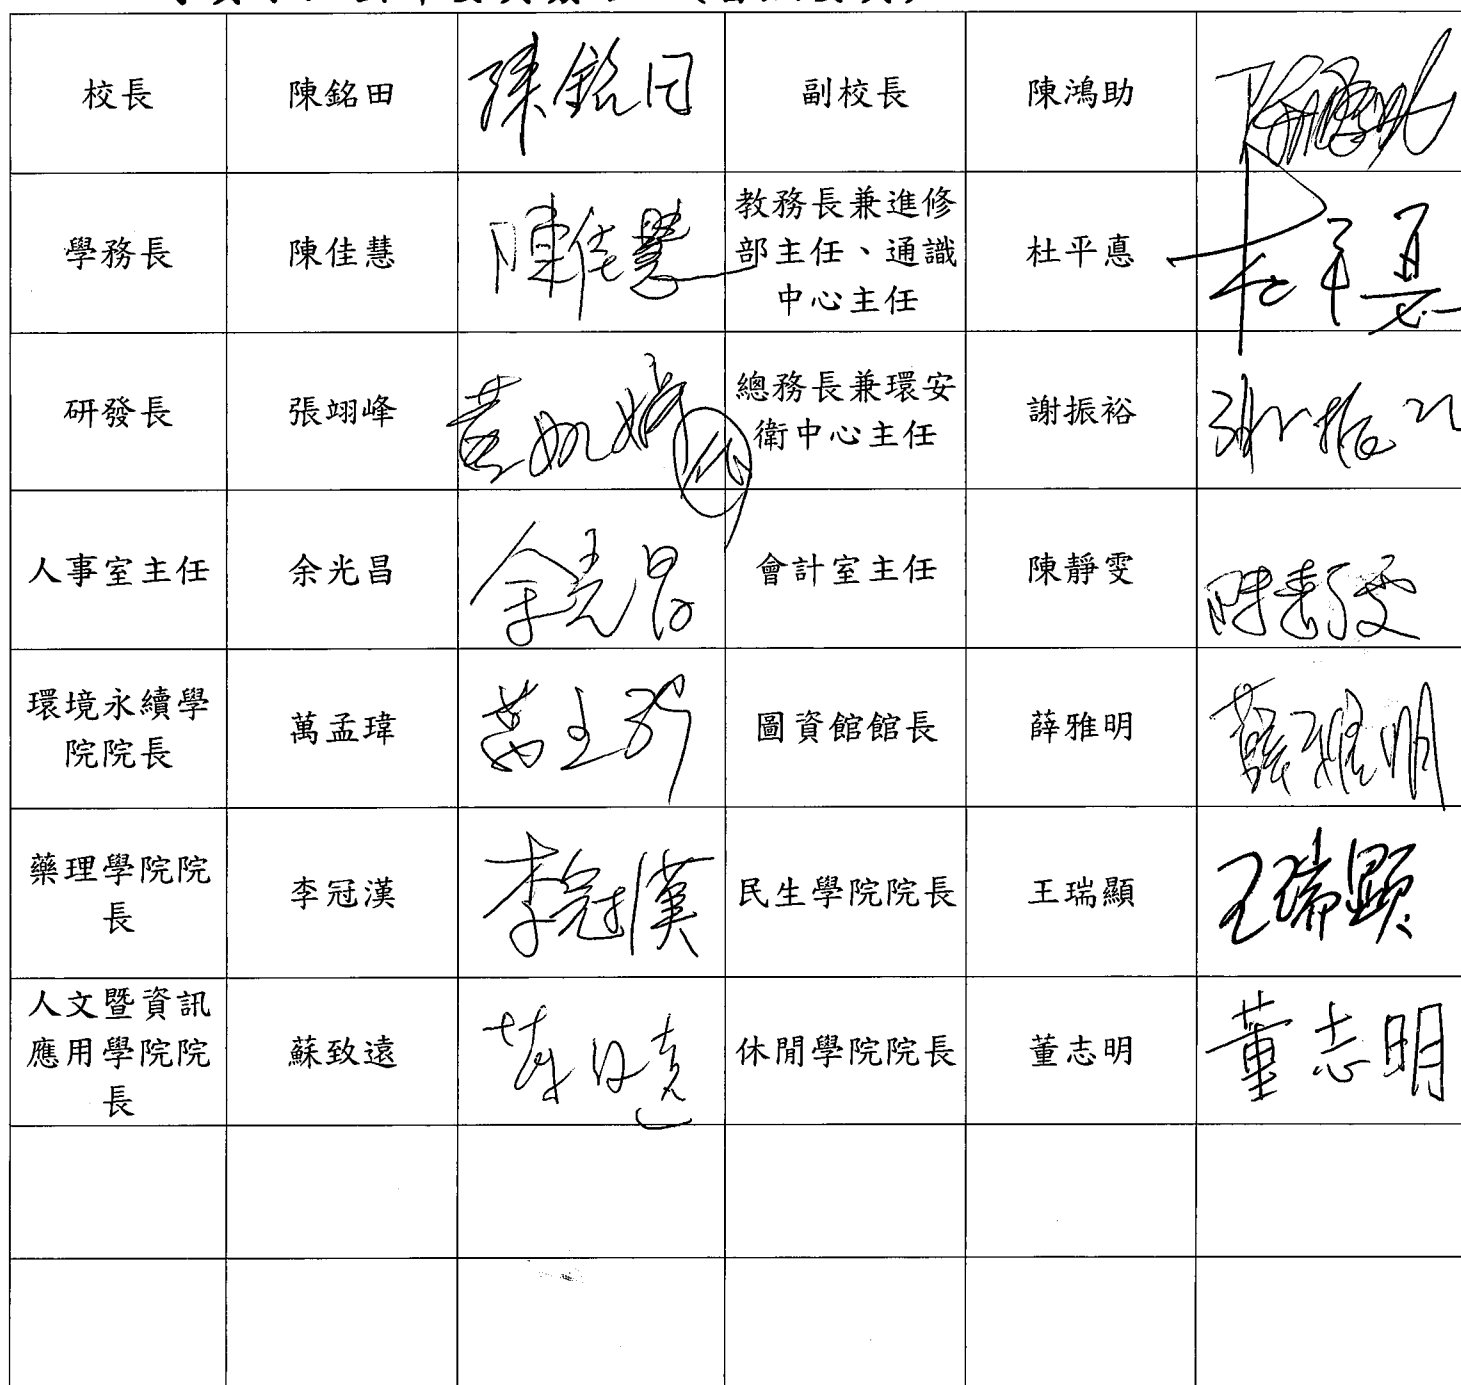 校長 陳銘田 陳銘田 副校長 陳鴻助
學務長 陳佳慧 陳佳慧 教務長兼進修
部主任、通識
中心主任 杜平悳 杜平悳
研發長 張翊峰 代 總務長兼環安
衛中心主任 謝振裕 謝振裕
人事室主任 余光昌 余光昌 會計室主任 陳靜雯 陳靜雯
環境永續學
院院長 萬孟瑋 圖資館館長 薛雅明 薛雅明
藥理學院院
長 李冠漢 李冠漢 民生學院院長 王瑞顯 王瑞顯
人文暨資訊
應用學院院
長 蘇致遠 休閒學院院長 董志明 董志明